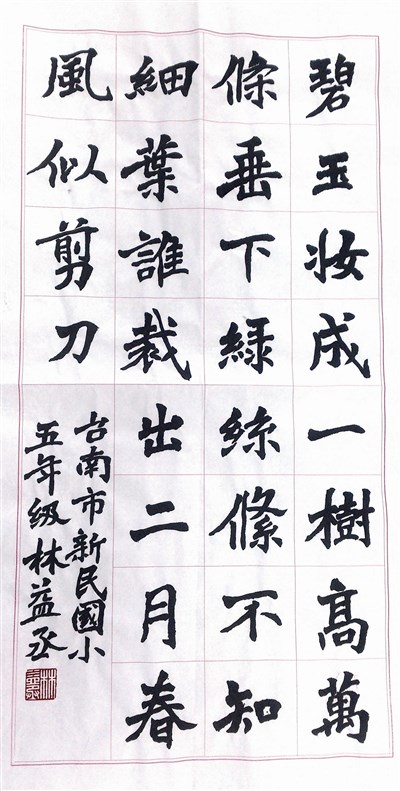 碧玉妆成一樹高萬
條垂下綠絲絛不知
細葉誰裁出二月春
風似剪刀
台南市新民國小
五年級林益丞